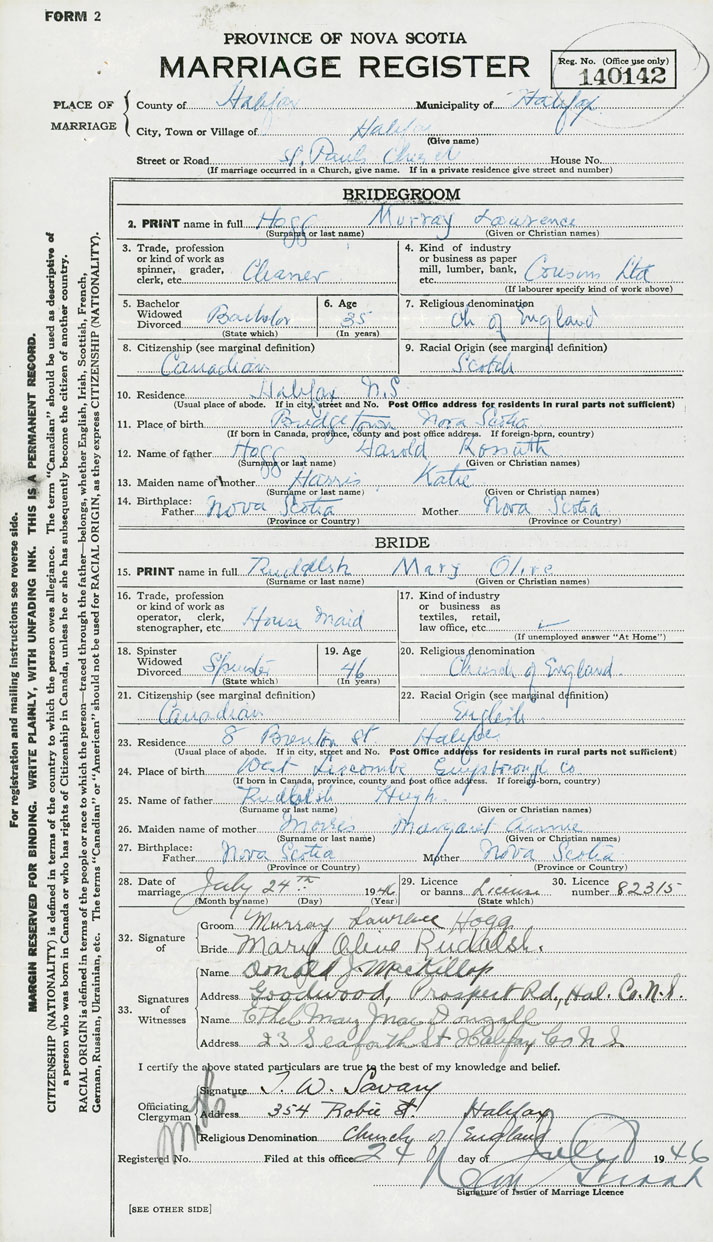 FORM 2
PROVINCE OF NOVA SCOTIA
MARRIAGE REGISTER
Reg. No. (Office use only)
140142
PLACE OF MARRIAGE
County of Halifax Municipality of Halifax
City, Town or Village of Halifax
(Give name)
Street or Road St. Pauls Church House No.
(If marriage occurred in a Church, give name. If in a private residence give street and number)
BRIDEGROOM
2. PRINT name in full Hogg Murray Lawrence
(Surname or last name) (Given or Christian names)
3. Trade, profession or kind of work as spinner, grader, clerk, etc. Cleaner
4. Kind of industry or business as paper mill, lumber, bank, etc. Cousins Ltd
(If labourer specify kind of work above)
5. Bachelor Widowed Divorced Bachelor
(State which)
6. Age 35
(In years)
7. Religious denomination Ch of England
8. Citizenship (see marginal definition) Canadian
9. Racial Origin (see marginal definition) Scotch
10. Residence Halifax N.S
(Usual place of abode. If in city, street and No. Post Office address for residents in rural parts not sufficient)
11. Place of birth Bridgetown Nova Scotia
(If born in Canada, province, county and post office address. If foreign-born, country)
12. Name of father Hogg Harold
(Surname or last name) (Given or Christian names)
13. Maiden name of mother Harris Katie
(Surname or last name) (Given or Christian names)
14. Birthplace: Father Nova Scotia Mother Nova Scotia
(Province or Country) (Province or Country)
BRIDE
15. PRINT name in full Rudalsh Mary Olive
(Surname or last name) (Given or Christian names)
16. Trade, profession or kind of work as operator, clerk, stenographer, etc. House Maid
17. Kind of industry or business as textiles, retail, law office, etc.
(If unemployed answer "At Home")
18. Spinster Widowed Divorced Spinster
(State which)
19. Age 46
(In years)
20. Religious denomination Church of England
21. Citizenship (see marginal definition) Canadian
22. Racial Origin (see marginal definition) English
23. Residence 8 Brenton St Halifax
(Usual place of abode. If in city, street and No. Post Office address for residents in rural parts not sufficient)
24. Place of birth West Liscombe Guysborough Co
(If born in Canada, province, county and post office address. If foreign-born, country)
25. Name of father Rudalsh Hugh
(Surname or last name) (Given or Christian names)
26. Maiden name of mother Morris Margaret Annie
(Surname or last name) (Given or Christian names)
27. Birthplace: Father Nova Scotia Mother Nova Scotia
(Province or Country) (Province or Country)
28. Date of marriage July 24th 1946
(Month by name) (Day) (Year)
29. Licence or banns License
(State which)
30. Licence number 82315
32. Signature of
Groom Murray Lawrence Hogg
Bride Mary Olive Rudalsh.
33. Signatures of Witnesses
Name Donald J. MacKillop
Address Goodwood, Prospect Rd, Hal. Co. N.S.
Name Ethel May MacDougall
Address 23 Seaforth St Halifax Co N S
I certify the above stated particulars are true to the best of my knowledge and belief.
Officiating Clergyman
Signature T. W. Savary
Address 354 Robie St. Halifax
Religious Denomination Church of England
Registered No. Filed at this office 24 day of July 1946
Signature of Issuer of Marriage Licence
[SEE OTHER SIDE]
For registration and mailing instructions see reverse side.
MARGIN RESERVED FOR BINDING. WRITE PLAINLY, WITH UNFADING INK. THIS IS A PERMANENT RECORD.
CITIZENSHIP (NATIONALITY) is defined in terms of the country to which the person owes allegiance. The term "Canadian" should be used as descriptive of
a person who was born in Canada or who has rights of Citizenship in Canada, unless he or she has subsequently become the citizen of another country.
RACIAL ORIGIN is defined in terms of the people or race to which the person—traced through the father—belongs, whether English, Irish, Scottish, French,
German, Russian, Ukrainian, etc. The terms "Canadian" or "American" should not be used for RACIAL ORIGIN, as they express CITIZENSHIP (NATIONALITY).